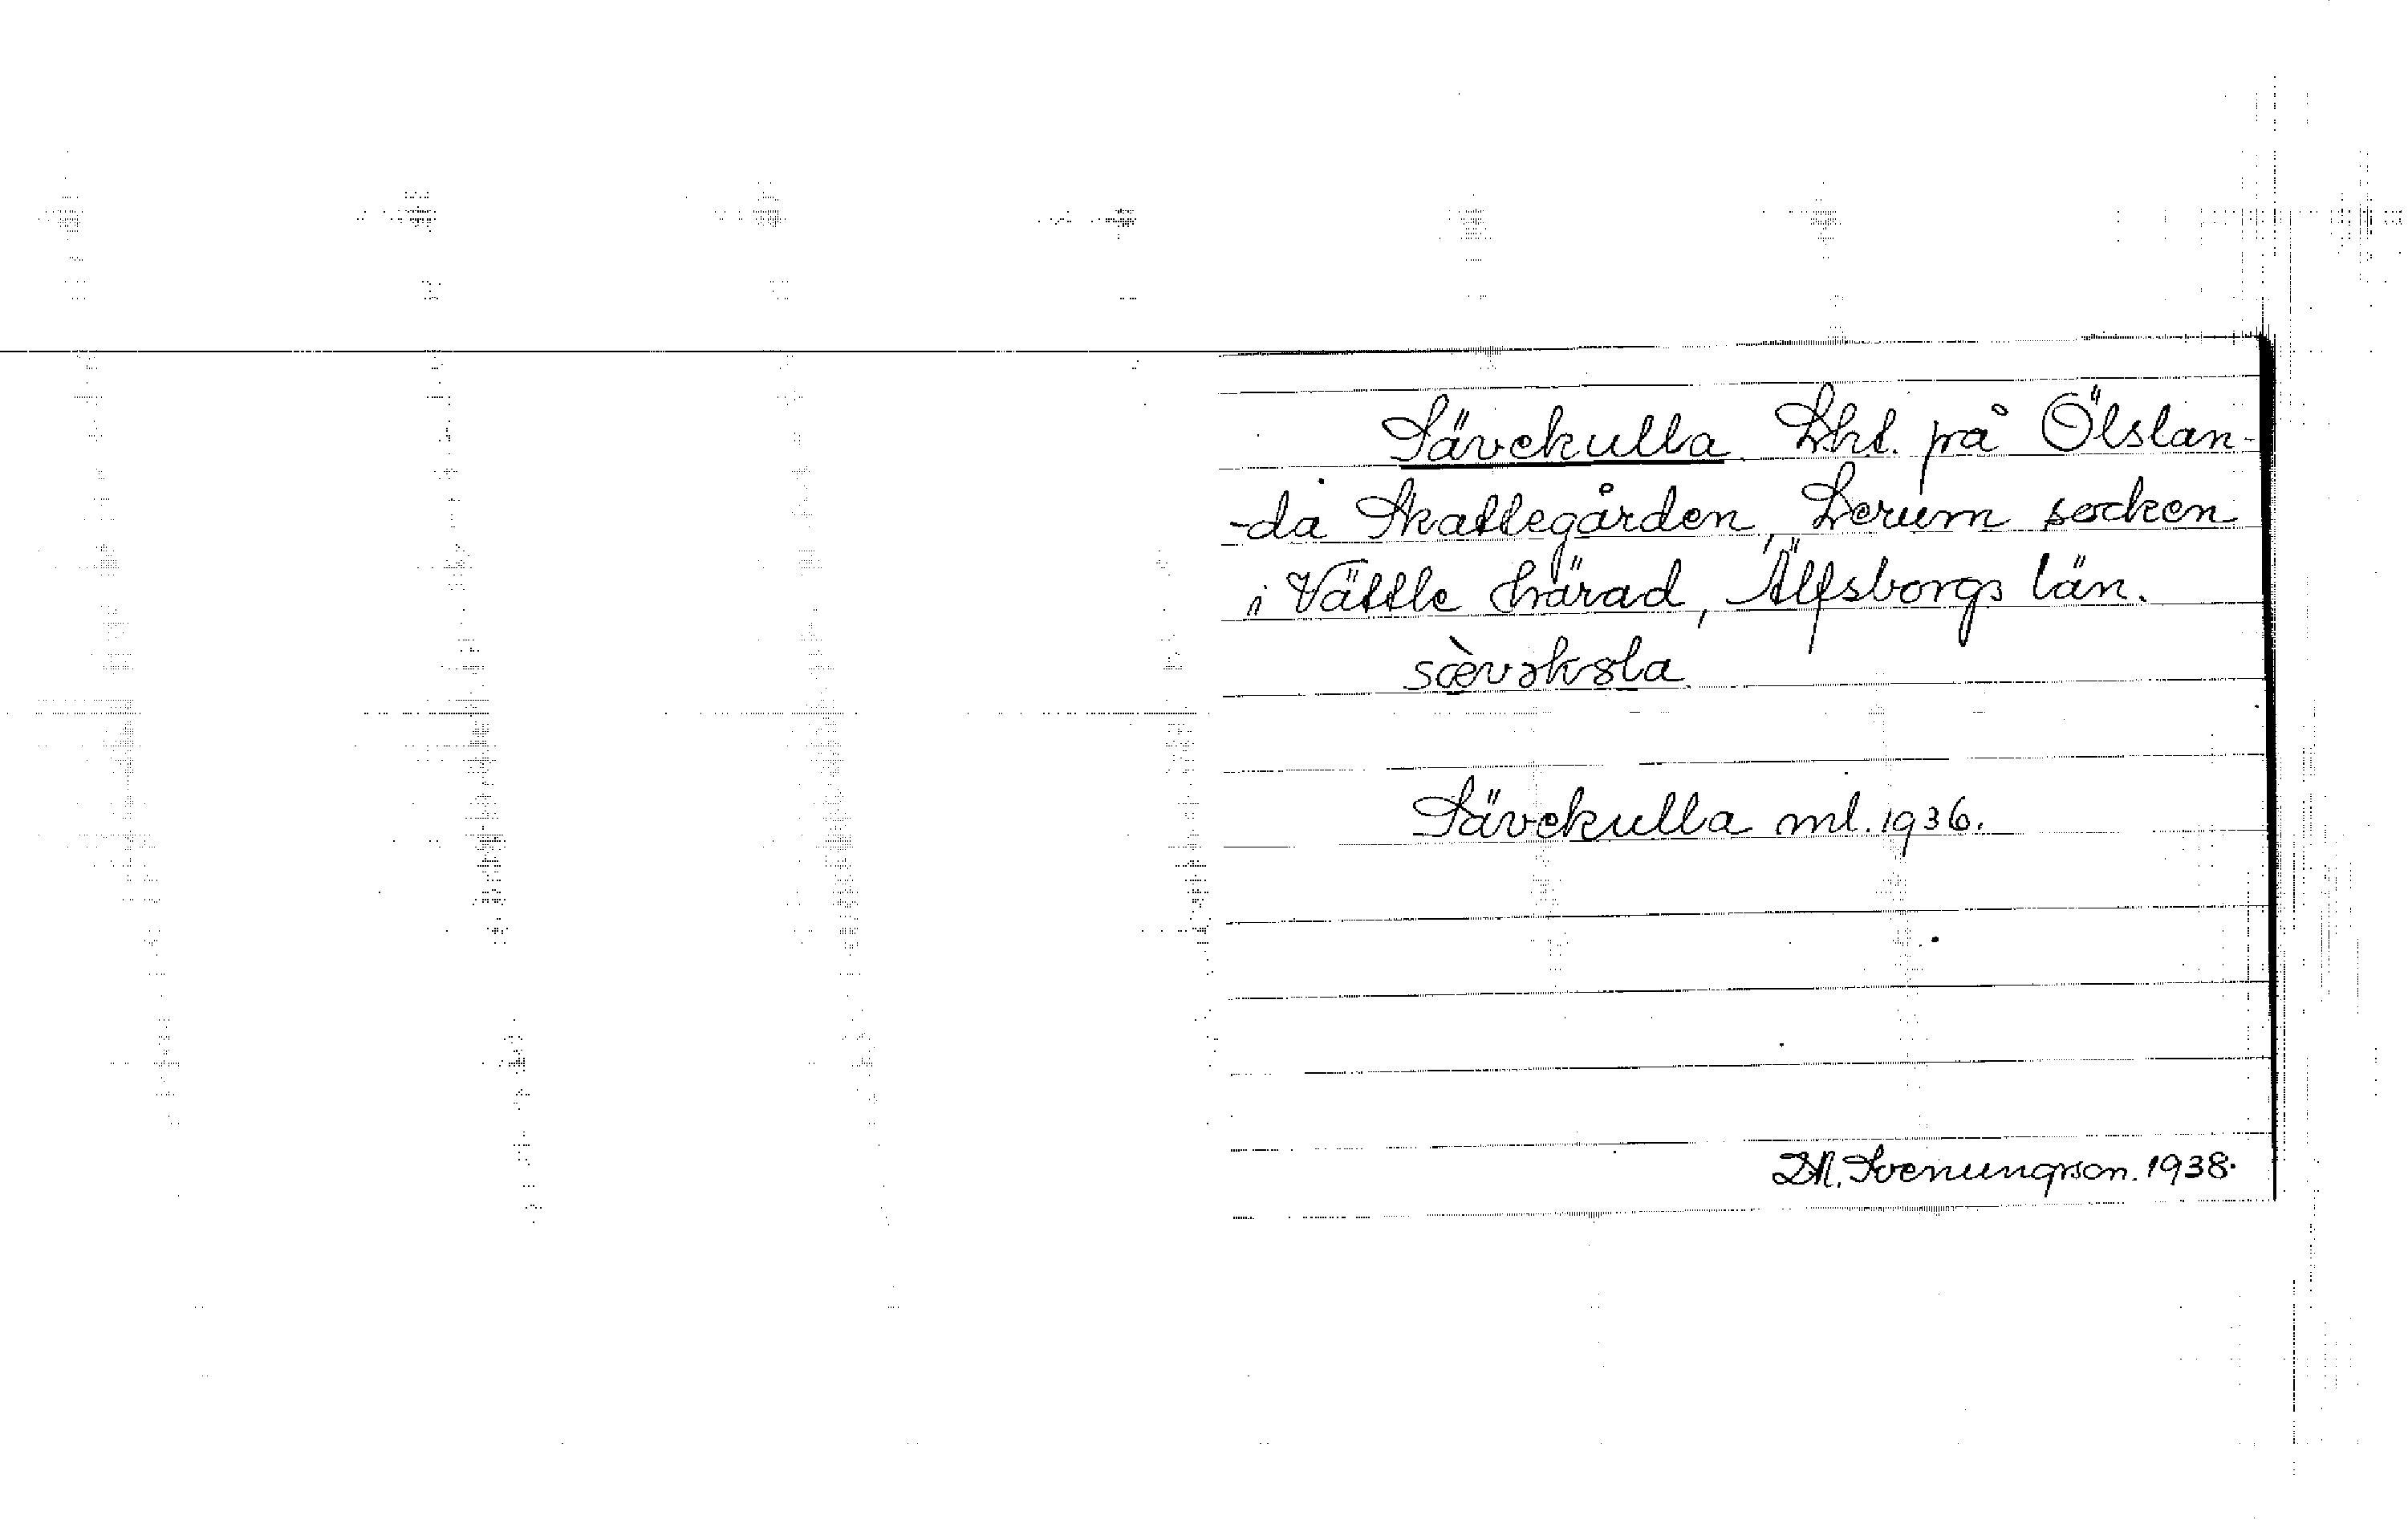 Sävekulla. Lht. på Ölslan-
-da Skattegården, Lerum socken
i Vättle härad, Älfsborgs län.
sœ̀vəkɵla
Sävekulla ml. 1936.
D.N. Svenungson. 1938.